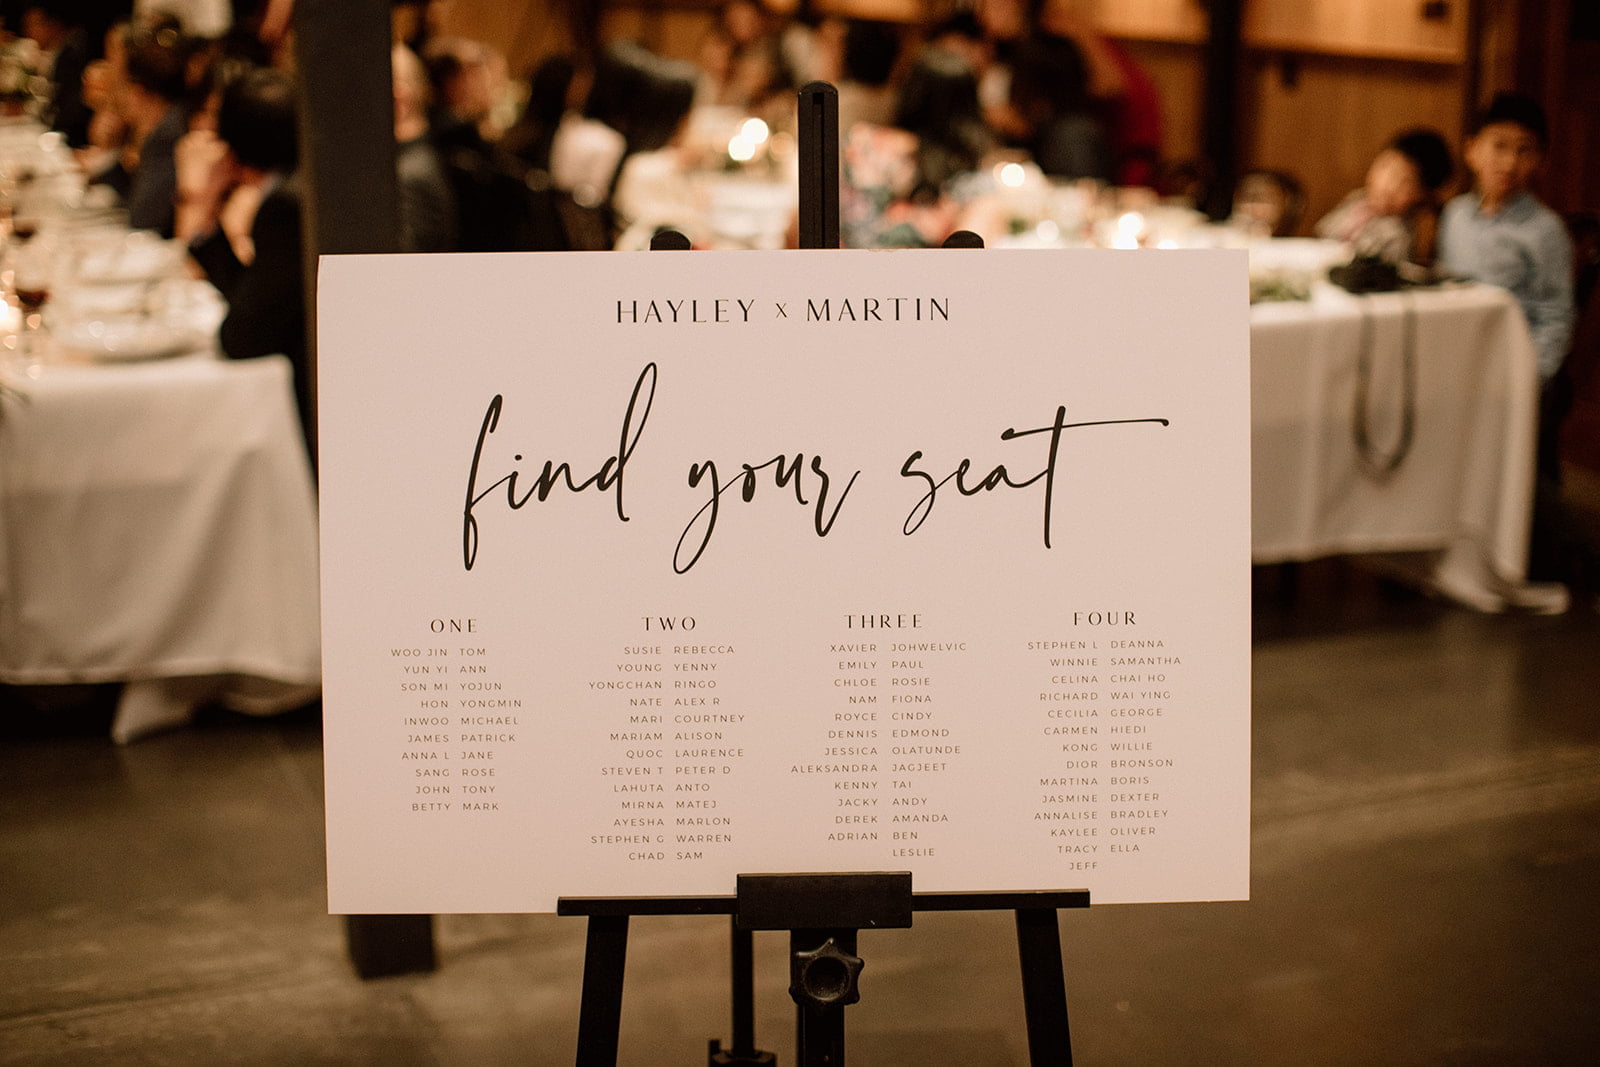 HAYLEY x MARTIN
find your seat
ONE
WOO JIN TOM
YUN YI ANN
SON MI YOJUN
HON YONGMIN
INWOO MICHAEL
JAMES PATRICK
ANNA L JANE
SANG ROSE
JOHN TONY
BETTY MARK
TWO
SUSIE REBECCA
YOUNG YENNY
YONGCHAN RINGO
NATE ALEX R
MARI COURTNEY
MARIAM ALISON
QUOC LAURENCE
STEVEN T PETER D
LAHUTA ANTO
MIRNA MATEJ
AYESHA MARLON
STEPHEN G WARREN
CHAD SAM
THREE
XAVIER JOHWELVIC
EMILY PAUL
CHLOE ROSIE
NAM FIONA
ROYCE CINDY
DENNIS EDMOND
JESSICA OLATUNDE
ALEKSANDRA JAGJEET
KENNY TAI
JACKY ANDY
DEREK AMANDA
ADRIAN BEN
LESLIE
FOUR
STEPHEN L DEANNA
WINNIE SAMANTHA
CELINA CHAI HO
RICHARD WAI YING
CECILIA GEORGE
CARMEN HIEDI
KONG WILLIE
DIOR BRONSON
MARTINA BORIS
JASMINE DEXTER
ANNALISE BRADLEY
KAYLEE OLIVER
TRACY ELLA
JEFF